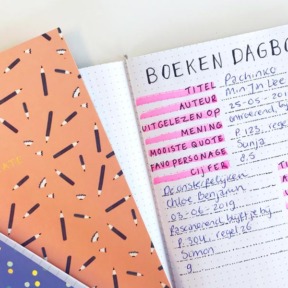 BOEKEN DAGBO
TITEL Pachinko
AUTEUR Min Jin Lee
UITGELEZEN OP 25-05-2019
MENING ontroerend, bij
MOOISTE QUOTE P. 123, regel
FAVO PERSONAGE Sunja
CIJFER 8.5
De onsterfelijken
Chloe Benjamin
03-06-2019
P. 304, regel 26
Simon
9
ATE